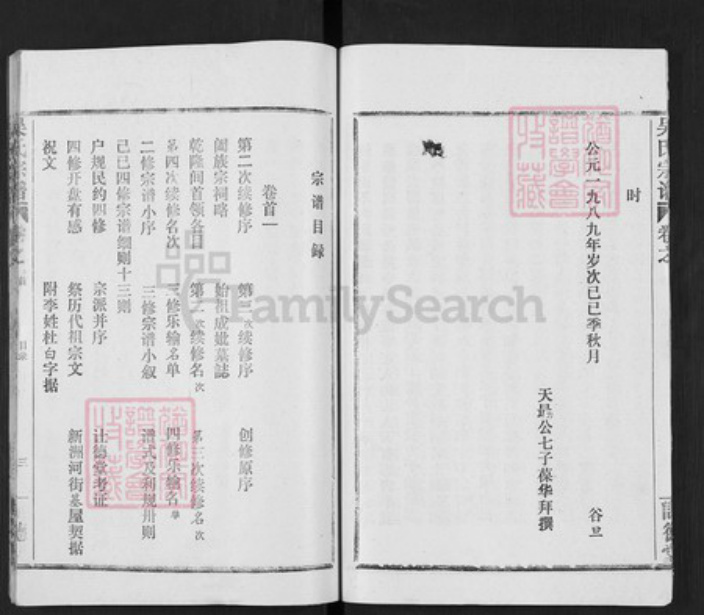 吴氏宗谱
时
公元一九八九年岁次己巳季秋月 谷旦
天最公七子葆华拜撰
宗谱目录
卷首一
第二次续修序 第三次续修序 创修原序
阖族宗祠略 始祖成妣墓誌
乾隆间首领各目 第二次续修名次 第三次续修名次
第四次续修名次 三修乐输名单 四修乐输名单
二修宗谱小序 三修宗谱小叙 谱式及利规卅则
己巳四修宗谱细则十三则
户规民约四修 宗派并序 让德堂考证
四修开盘有感 祭历代祖宗文 新洲河街基屋契据
祝文 附李姓杜白字据
吴氏宗谱 卷之首 目录 三
FamilySearch